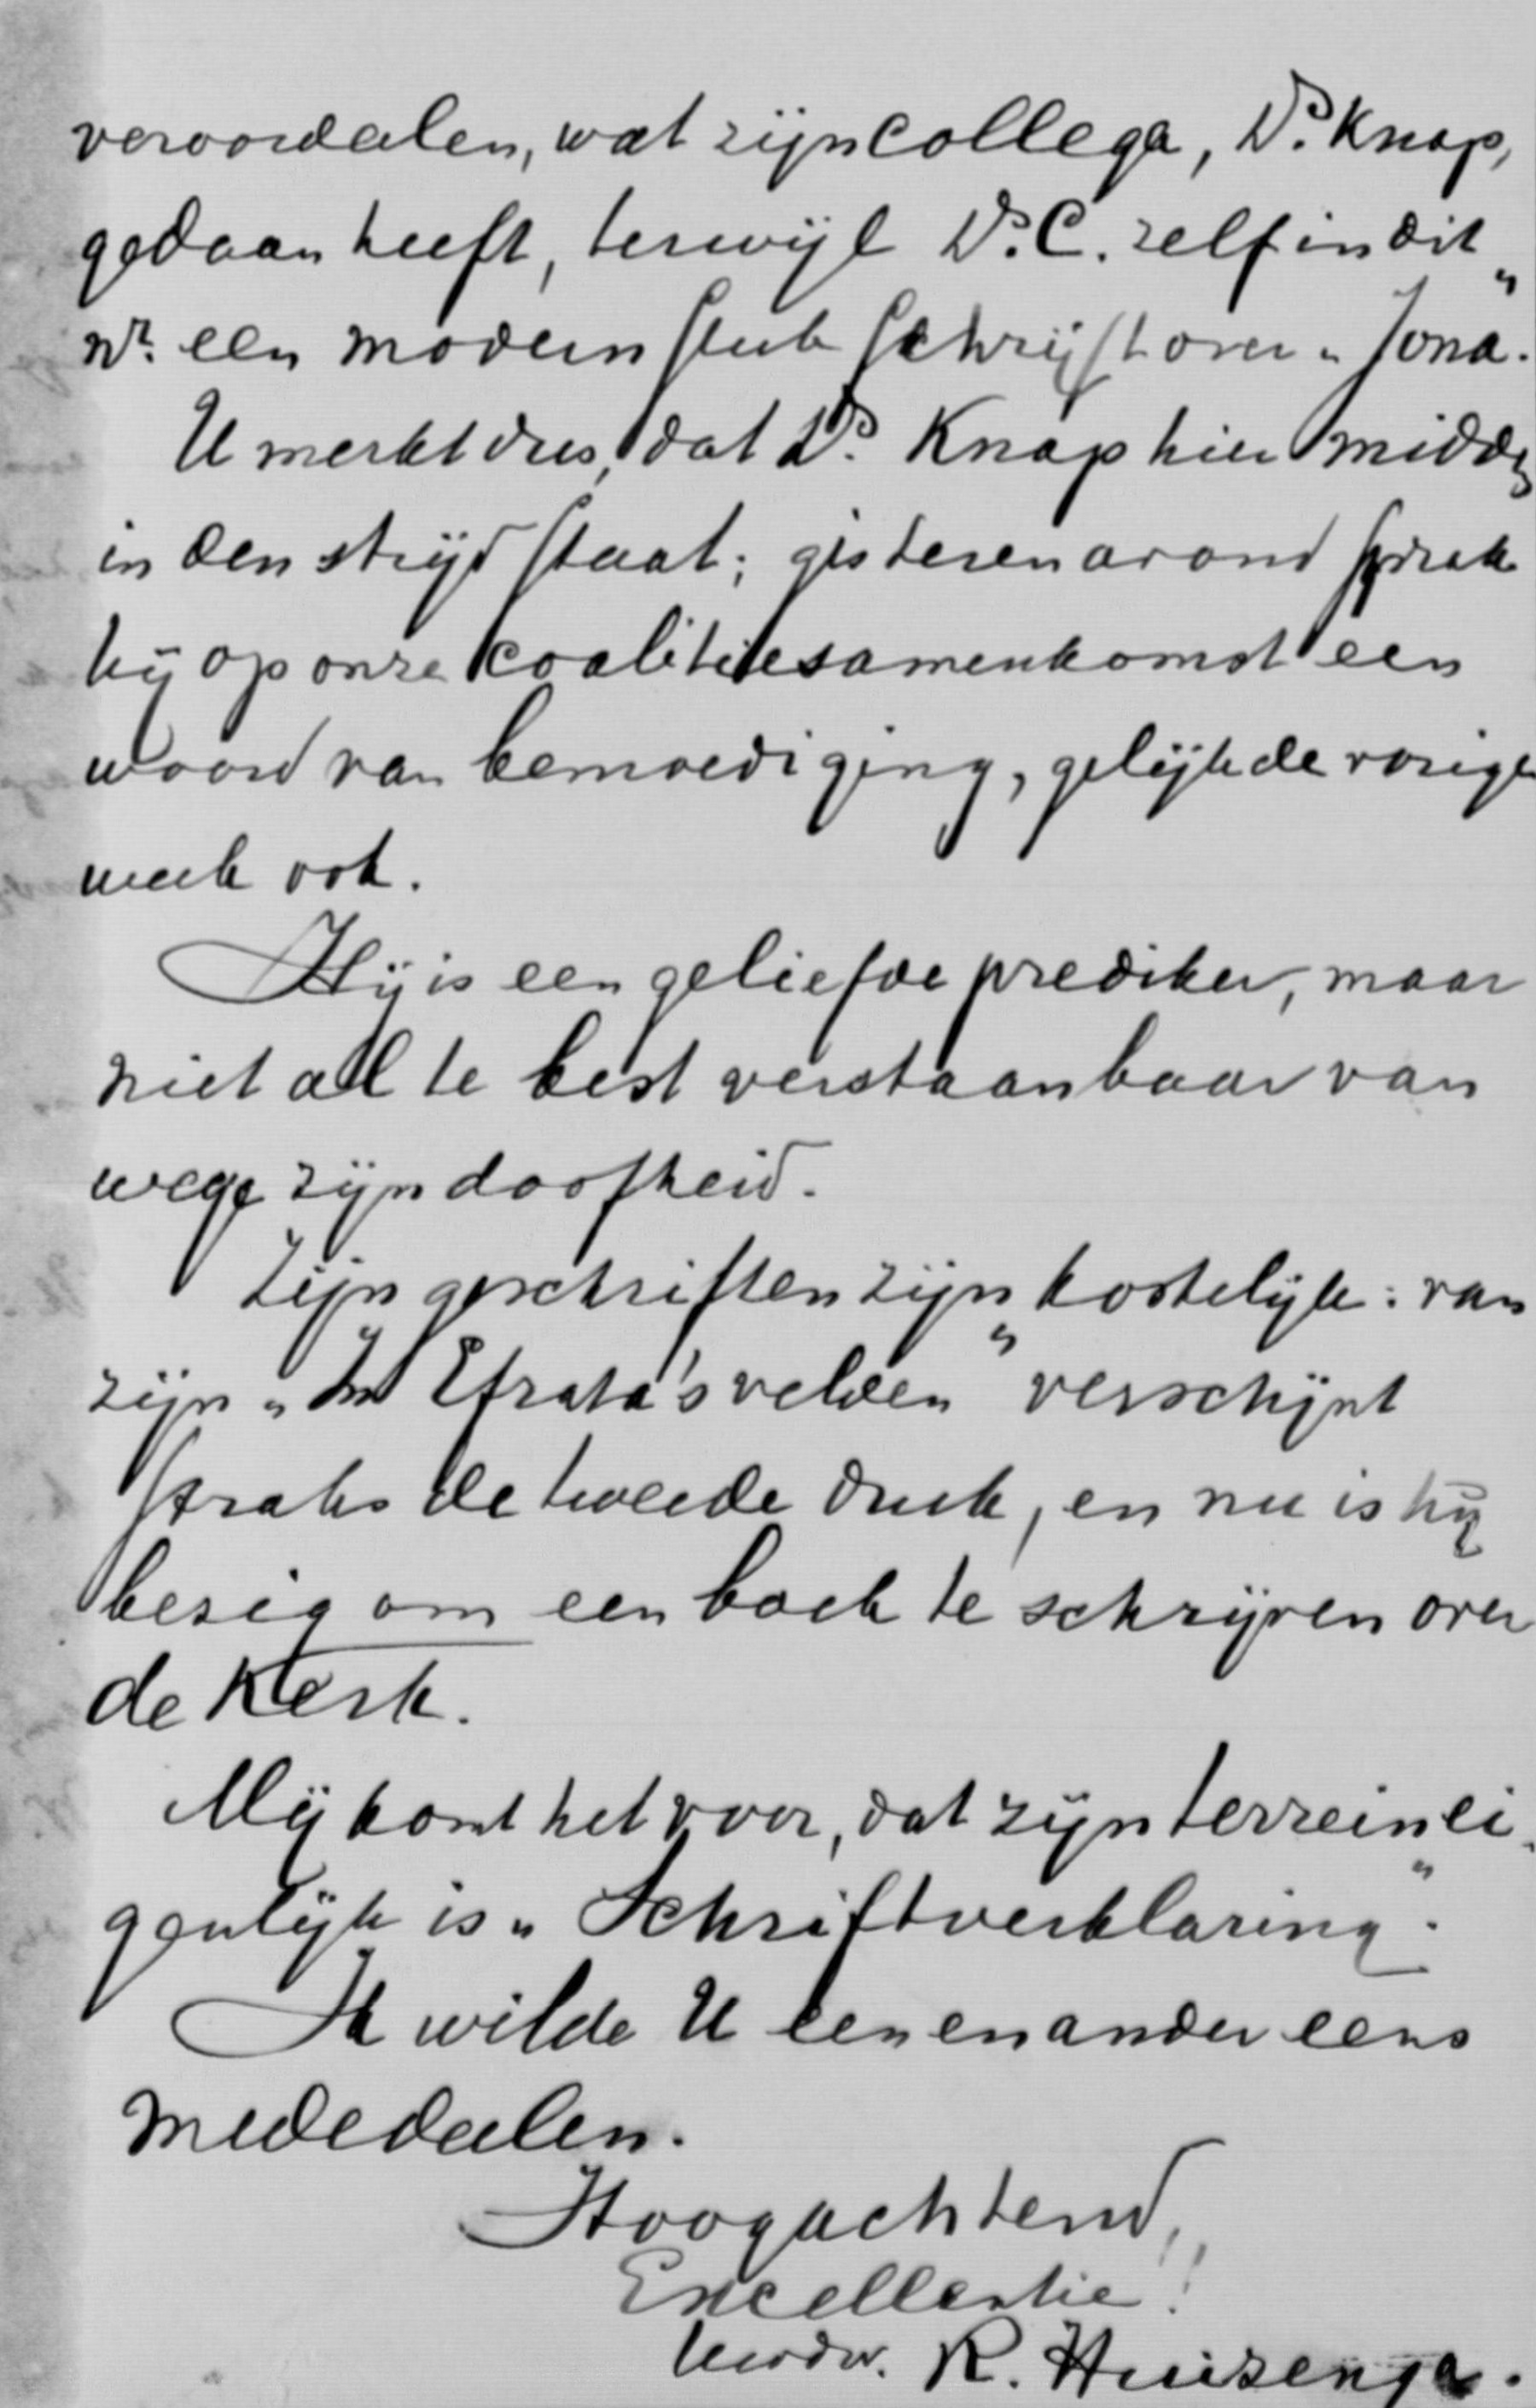 veroordeelen, wat zijn collega, Ds. Knap,
gedaan heeft, terwijl Ds. C. zelf in dit
nr. een modern stuk schrijft over „Jona".
U merkt dus, dat Ds. Knap hier midden
in den strijd staat; gisterenavond sprak
hij op onze coalitiesamenkomst een
woord van bemoediging, gelijk de vorige
week ook.
Hij is een geliefde prediker, maar
niet al te best verstaanbaar van
wege zijn doofheid.
Zijn geschriften zijn kostelijk: van
zijn „In Efrata's velden" verschijnt
straks de tweede druk, en nu is hij
bezig om een boek te schrijven over
de Kerk.
Mij komt het voor, dat zijn terrein ei-
genlijk is „Schriftverklaring".
Ik wilde U een en ander eens
mededeelen.
Hoogachtend,
Excellentie!
Uwdw. R. Huizenga.